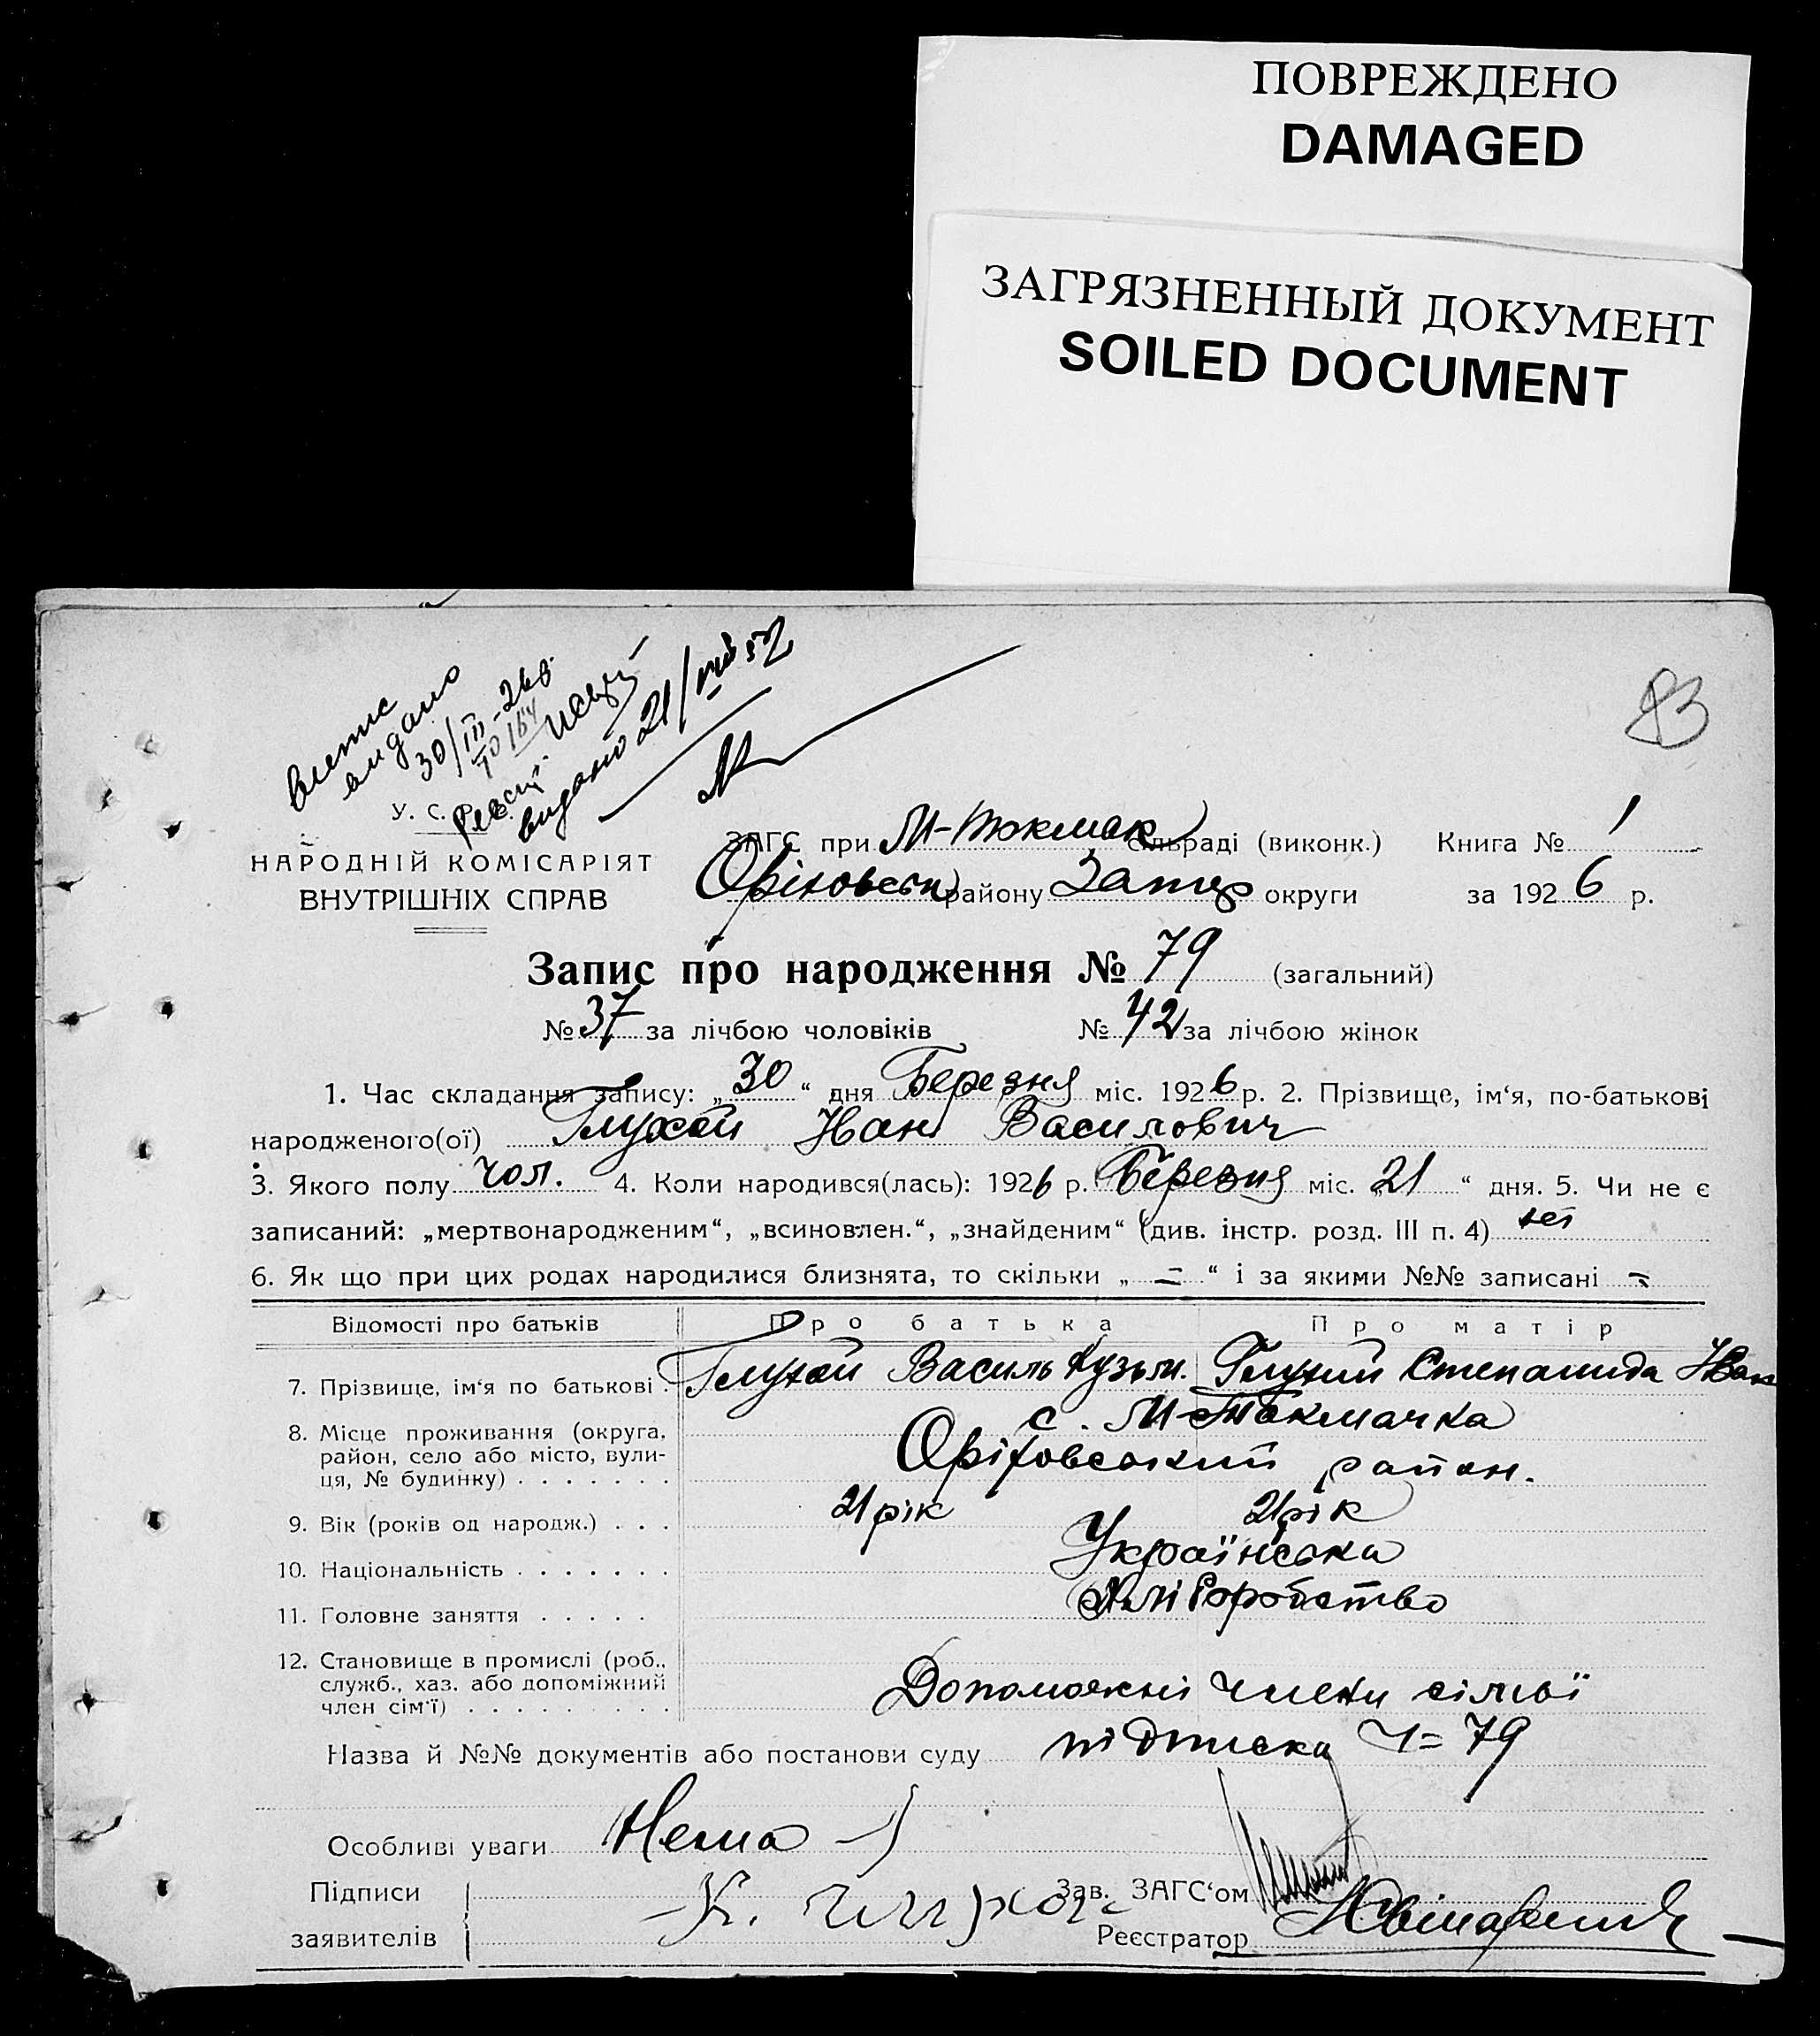 ПОВРЕЖДЕНО
DAMAGED
ЗАГРЯЗНЕННЫЙ ДОКУМЕНТ
SOILED DOCUMENT
83
витис
видано
30/III-26р.
видано 21/VIII 52
У. С.
НАРОДНІЙ КОМІСАРІЯТ
ВНУТРІШНІХ СПРАВ
ЗАГС при М-Токмак сільраді (виконк.) Книга № 1
Оріховськ району Запор округи за 1926 р.
Запис про народження № 79 (загальний)
№ 37 за лічбою чоловіків № 42 за лічбою жінок
1. Час складання запису: „30“ дня Березня міс. 1926 р. 2. Прізвище, ім‘я, по-батькові
народженого(ої) Глухой Иван Василович
3. Якого полу чол. 4. Коли народився(лась): 1926 р. Березня міс. „21“ дня. 5. Чи не є
записаний: „мертвонародженим“, „всиновлен.“, „знайденим“ (див. інстр. розд. III п. 4)
6. Як що при цих родах народилися близнята, то скільки „ = “ і за якими №№ записані =
Відомості про батьків Про батька Про матір
7. Прізвище, ім‘я по батькові . Глухой Василь Кузьм. Глухий Степанида Иван
8. Місце проживання (округа, район, село або місто, вули- ця, № будинку) . . . . . . . с. М-Токмачка
Оріховський район.
9. Вік (років од народж.) . . . 21 рік 21 рік
10. Національність . . . . . . . Українська
11. Головне заняття . . . . . Хліборобство
12. Становище в промислі (роб., служб., хаз. або допоміжний член сім‘ї) . . . . . . . . . Допоможні члени сімьї
Назва й №№ документів або постанови суду підписка Ч= 79
Особливі уваги Нема
Підписи
заявителів
К.
Зав. ЗАГС‘ом
Реєстратор